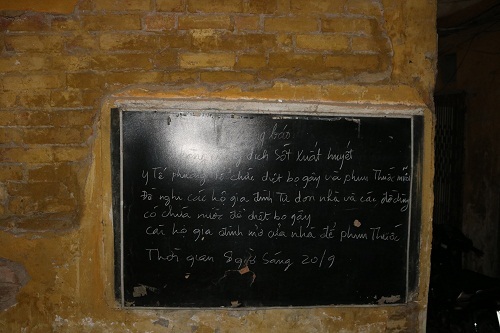 báo
dịch Sốt Xuất huyết
y Tế phường Tổ chức diệt bọ gậy và phun Thuốc muỗi
Đề nghị các hộ gia đình Tự dọn nhà và các đồ dùng
có chứa nước để diệt bọ gậy
các hộ gia đình mở cửa nhà để phun Thuốc
Thời gian 8 giờ Sáng 20/9